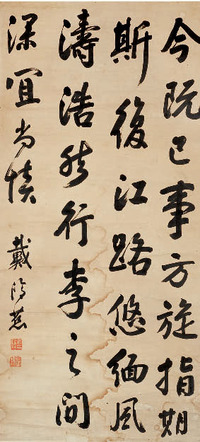 今既已事方旋指期
斯復江路悠緬風
濤浩然行李之間
深宜尚慎
戴鴻慈